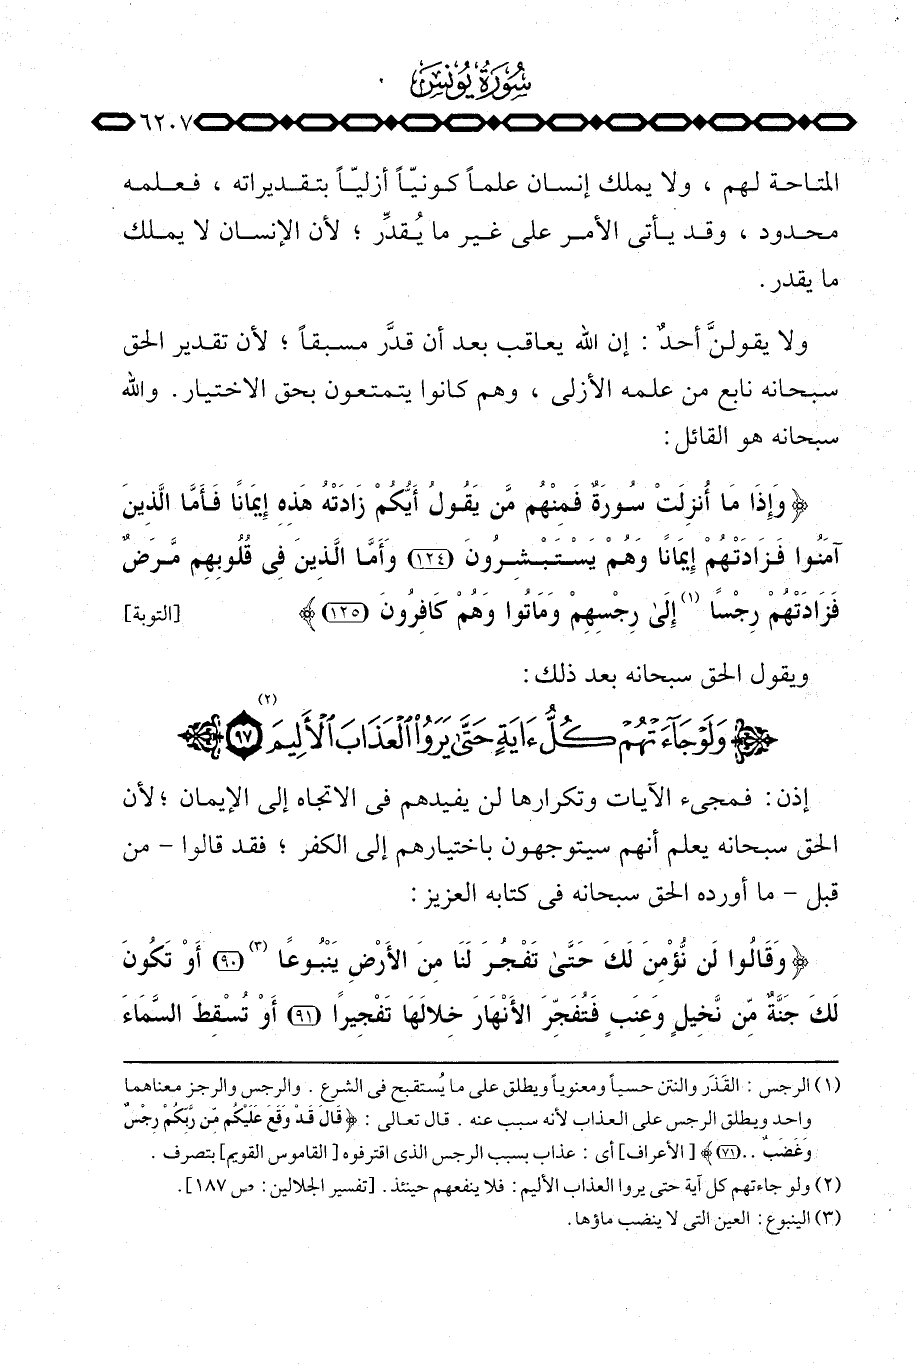 سُورَةُ يُونُسَ
٦٢٠٧
المتاحة لهم ، ولا يملك إنسان علماً كونيّاً أزليّاً بتقديراته ، فعلمه
محدود ، وقد يأتى الأمر على غير ما يُقدِّر ؛ لأن الإنسان لا يملك
ما يقدر .
ولا يقولنَّ أحدٌ : إن الله يعاقب بعد أن قدَّر مسبقاً ؛ لأن تقدير الحق
سبحانه نابع من علمه الأزلى ، وهم كانوا يتمتعون بحق الاختيار . والله
سبحانه هو القائل :
﴿ وَإِذَا مَا أُنزِلَتْ سُورَةٌ فَمِنْهُم مَّن يَقُولُ أَيُّكُمْ زَادَتْهُ هَذِهِ إِيمَانًا فَأَمَّا الَّذِينَ
آمَنُوا فَزَادَتْهُمْ إِيمَانًا وَهُمْ يَسْتَبْشِرُونَ (١٢٤) وَأَمَّا الَّذِينَ فِى قُلُوبِهِم مَّرَضٌ
فَزَادَتْهُمْ رِجْسًا (١) إِلَىٰ رِجْسِهِمْ وَمَاتُوا وَهُمْ كَافِرُونَ (١٢٥) ﴾ [التوبة]
ويقول الحق سبحانه بعد ذلك :
﴿ وَلَوْ جَآءَتْهُمْ كُلُّ ءَايَةٍ حَتَّىٰ يَرَوُا۟ ٱلْعَذَابَ ٱلْأَلِيمَ (٢) ٩٧ ﴾
إذن : فمجىء الآيات وتكرارها لن يفيدهم فى الاتجاه إلى الإيمان ؛ لأن
الحق سبحانه يعلم أنهم سيتوجهون باختيارهم إلى الكفر ؛ فقد قالوا - من
قبل - ما أورده الحق سبحانه فى كتابه العزيز :
﴿ وَقَالُوا لَن نُّؤْمِنَ لَكَ حَتَّىٰ تَفْجُرَ لَنَا مِنَ الأَرْضِ يَنْبُوعًا (٣) (٩٠) أَوْ تَكُونَ
لَكَ جَنَّةٌ مِّن نَّخِيلٍ وَعِنَبٍ فَتُفَجِّرَ الأَنْهَارَ خِلالَهَا تَفْجِيرًا (٩١) أَوْ تُسْقِطَ السَّمَاءَ
(١) الرجس : القَذَر والنتن حسياً ومعنوياً ويطلق على ما يُستقبح فى الشرع . والرجس والرجز معناهما
واحد ويطلق الرجس على العذاب لأنه سبب عنه . قال تعالى : ﴿ قَالَ قَدْ وَقَعَ عَلَيْكُم مِّن رَّبِّكُمْ رِجْسٌ
وَغَضَبٌ .. (٧١) ﴾ [ الأعراف] أى : عذاب بسبب الرجس الذى اقترفوه [ القاموس القويم] بتصرف .
(٢) ولو جاءتهم كل آية حتى يروا العذاب الأليم : فلا ينفعهم حينئذ . [تفسير الجلالين : ص ١٨٧].
(٣) الينبوع : العين التى لا ينضب ماؤها .